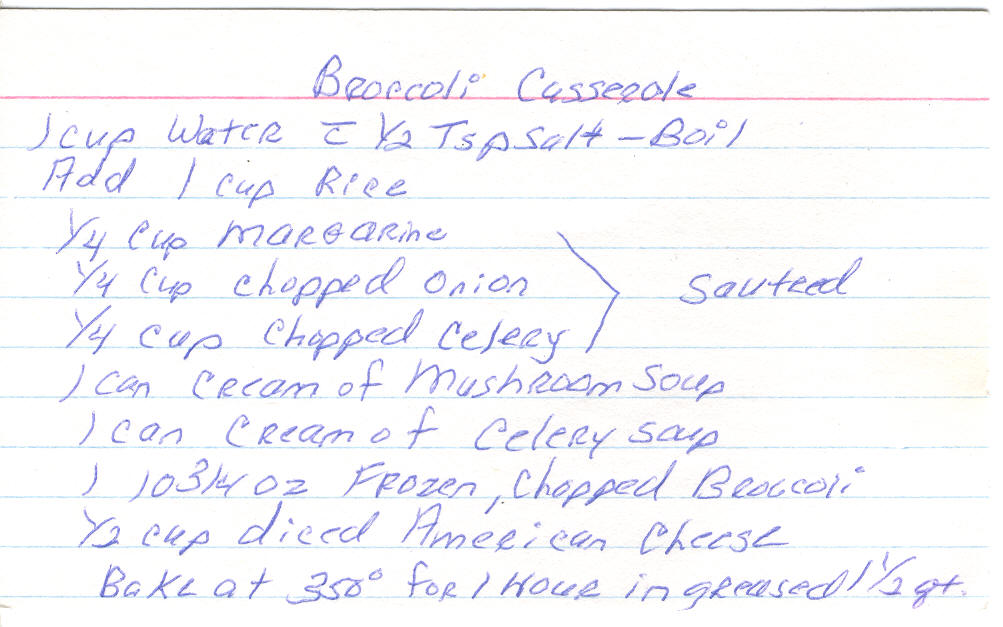 Broccoli Casserole
1 cup Water c̄ 1/2 Tsp Salt - Boil
Add 1 cup Rice
1/4 Cup Margarine
1/4 Cup chopped onion
1/4 cup Chopped Celery
Sauteed
1 can Cream of Mushroom Soup
1 can Cream of Celery Soup
1 10 3/4 oz Frozen, Chopped Broccoli
1/2 cup diced American Cheese
Bake at 350° for 1 Hour in greased 1 1/2 qt.